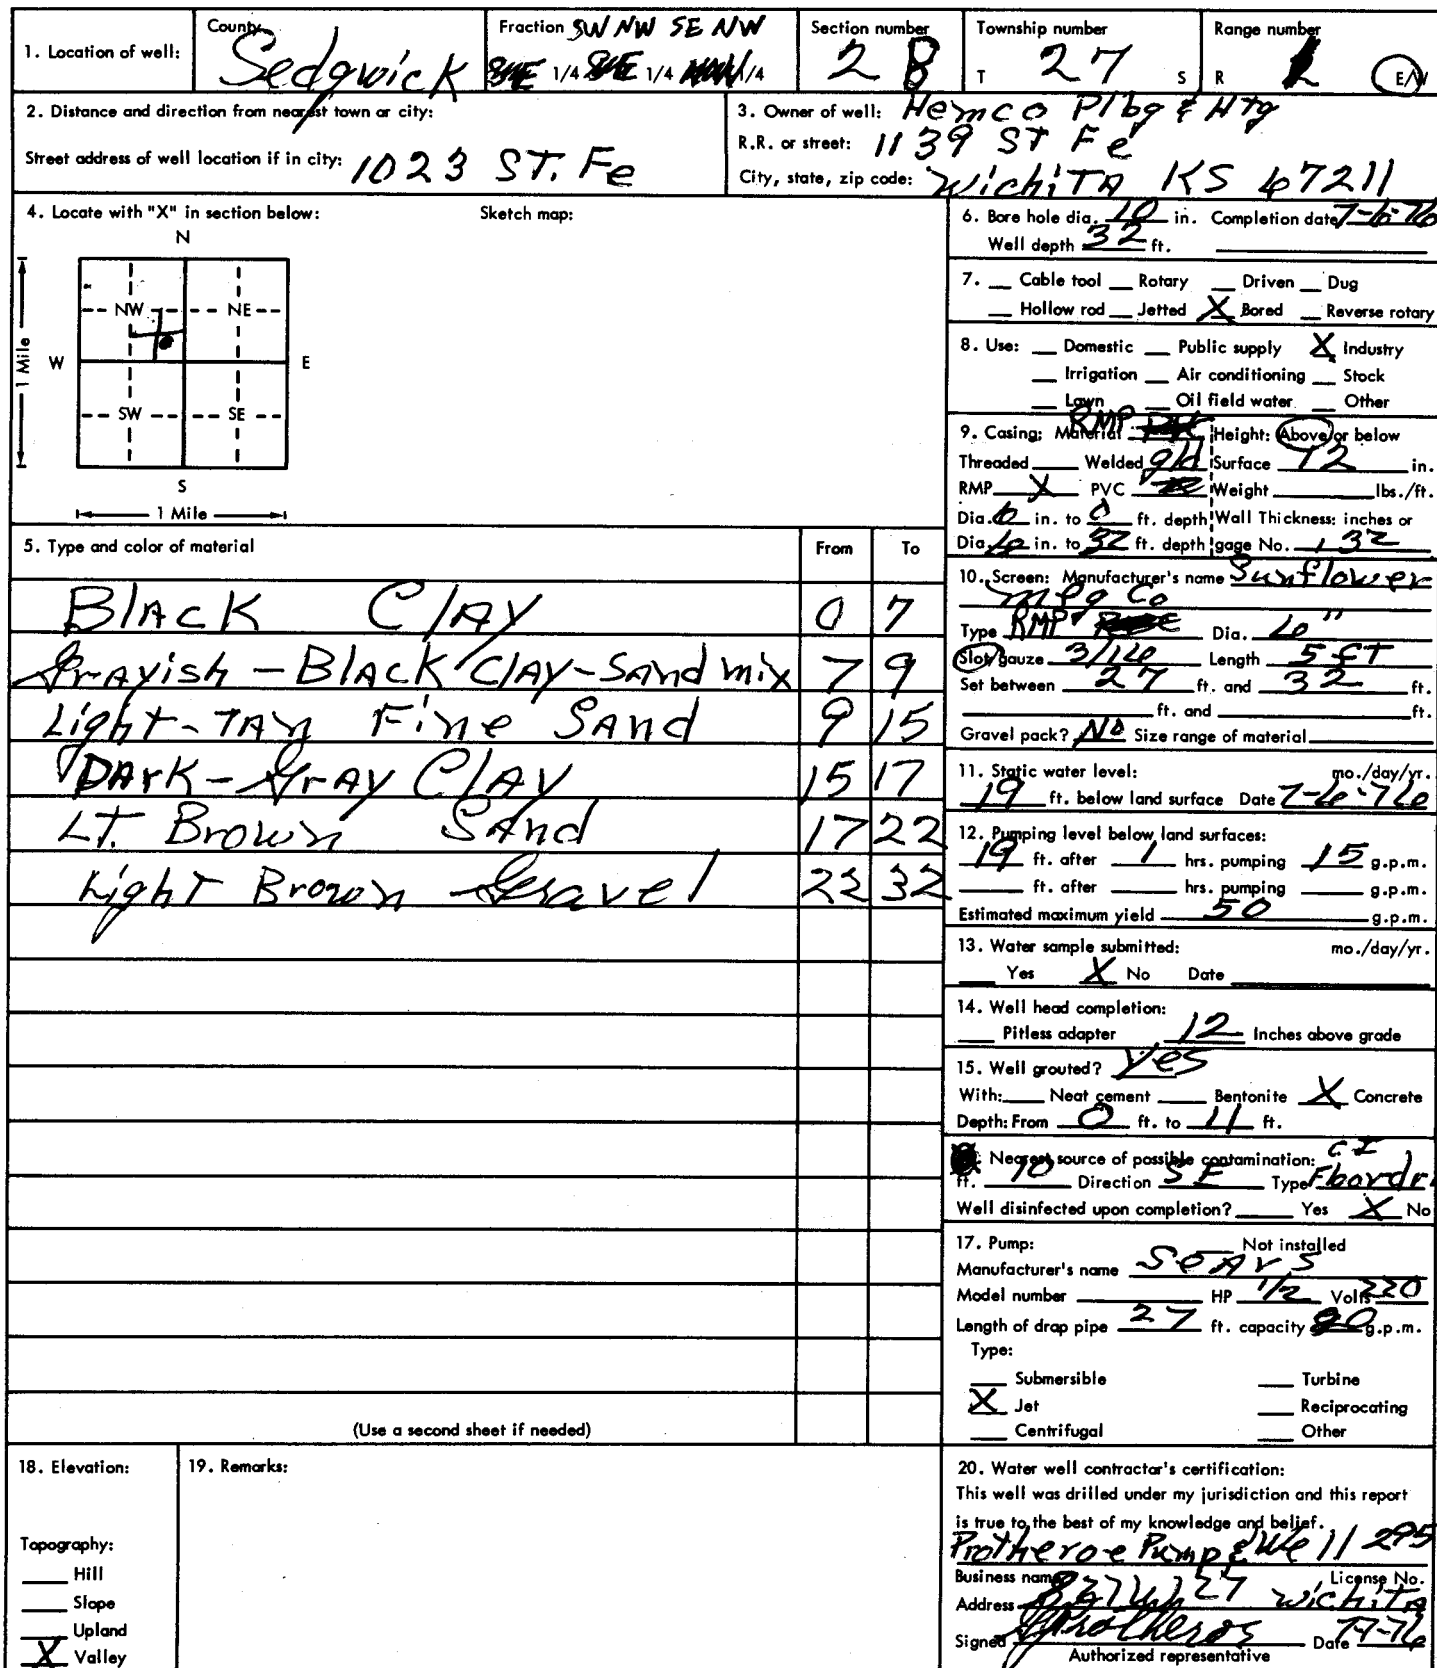 1. Location of well:
County
Sedgwick
Fraction SW NW SE NW
1/4 1/4 1/4
Section number
28
Township number
T 27 S
Range number
R 1 E/W
2. Distance and direction from nearest town or city:
Street address of well location if in city: 1023 ST. Fe
3. Owner of well: Hemco Plbg & Htg
R.R. or street: 1139 ST Fe
City, state, zip code: Wichita KS 67211
4. Locate with "X" in section below:
Sketch map:
N
NW NE
W E
SW SE
S
1 Mile
1 Mile
5. Type and color of material From To
Black Clay 0 7
Grayish - Black Clay - Sand mix 7 9
Light - Tan Fine Sand 9 15
Dark - Gray Clay 15 17
LT. Brown Sand 17 22
Light Brown Gravel 22 32
(Use a second sheet if needed)
6. Bore hole dia. 10 in. Completion date 7-6-76
Well depth 32 ft.
7. Cable tool Rotary Driven Dug
Hollow rod Jetted X Bored Reverse rotary
8. Use: Domestic Public supply X Industry
Irrigation Air conditioning Stock
Lawn Oil field water Other
9. Casing: Material RMP Height: Above or below
Threaded Welded gld Surface 12 in.
RMP X PVC Weight lbs./ft.
Dia. 6 in. to 0 ft. depth Wall Thickness: inches or
Dia. 6 in. to 32 ft. depth gage No. .32
10. Screen: Manufacturer's name Sunflower
Mfg Co
Type RMP Dia. 6"
Slot/gauze 3/16 Length 5 FT
Set between 27 ft. and 32 ft.
ft. and ft.
Gravel pack? No Size range of material
11. Static water level: mo./day/yr.
19 ft. below land surface Date 7-6-76
12. Pumping level below land surfaces:
19 ft. after 1 hrs. pumping 15 g.p.m.
ft. after hrs. pumping g.p.m.
Estimated maximum yield 50 g.p.m.
13. Water sample submitted: mo./day/yr.
Yes X No Date
14. Well head completion:
Pitless adapter 12 Inches above grade
15. Well grouted? Yes
With: Neat cement Bentonite X Concrete
Depth: From 0 ft. to 11 ft.
Nearest source of possible contamination: CI
ft. 10 Direction SE Type Floordr
Well disinfected upon completion? Yes X No
17. Pump: Not installed
Manufacturer's name Sears
Model number HP 1/2 Volts 220
Length of drop pipe 27 ft. capacity g.p.m.
Type:
Submersible Turbine
X Jet Reciprocating
Centrifugal Other
18. Elevation:
Topography:
Hill
Slope
Upland
X Valley
19. Remarks:
20. Water well contractor's certification:
This well was drilled under my jurisdiction and this report
is true to the best of my knowledge and belief.
Protheroe Pump & Well 295
Business name License No.
Address Wichita
Signed Protheroe Date 7-7-76
Authorized representative